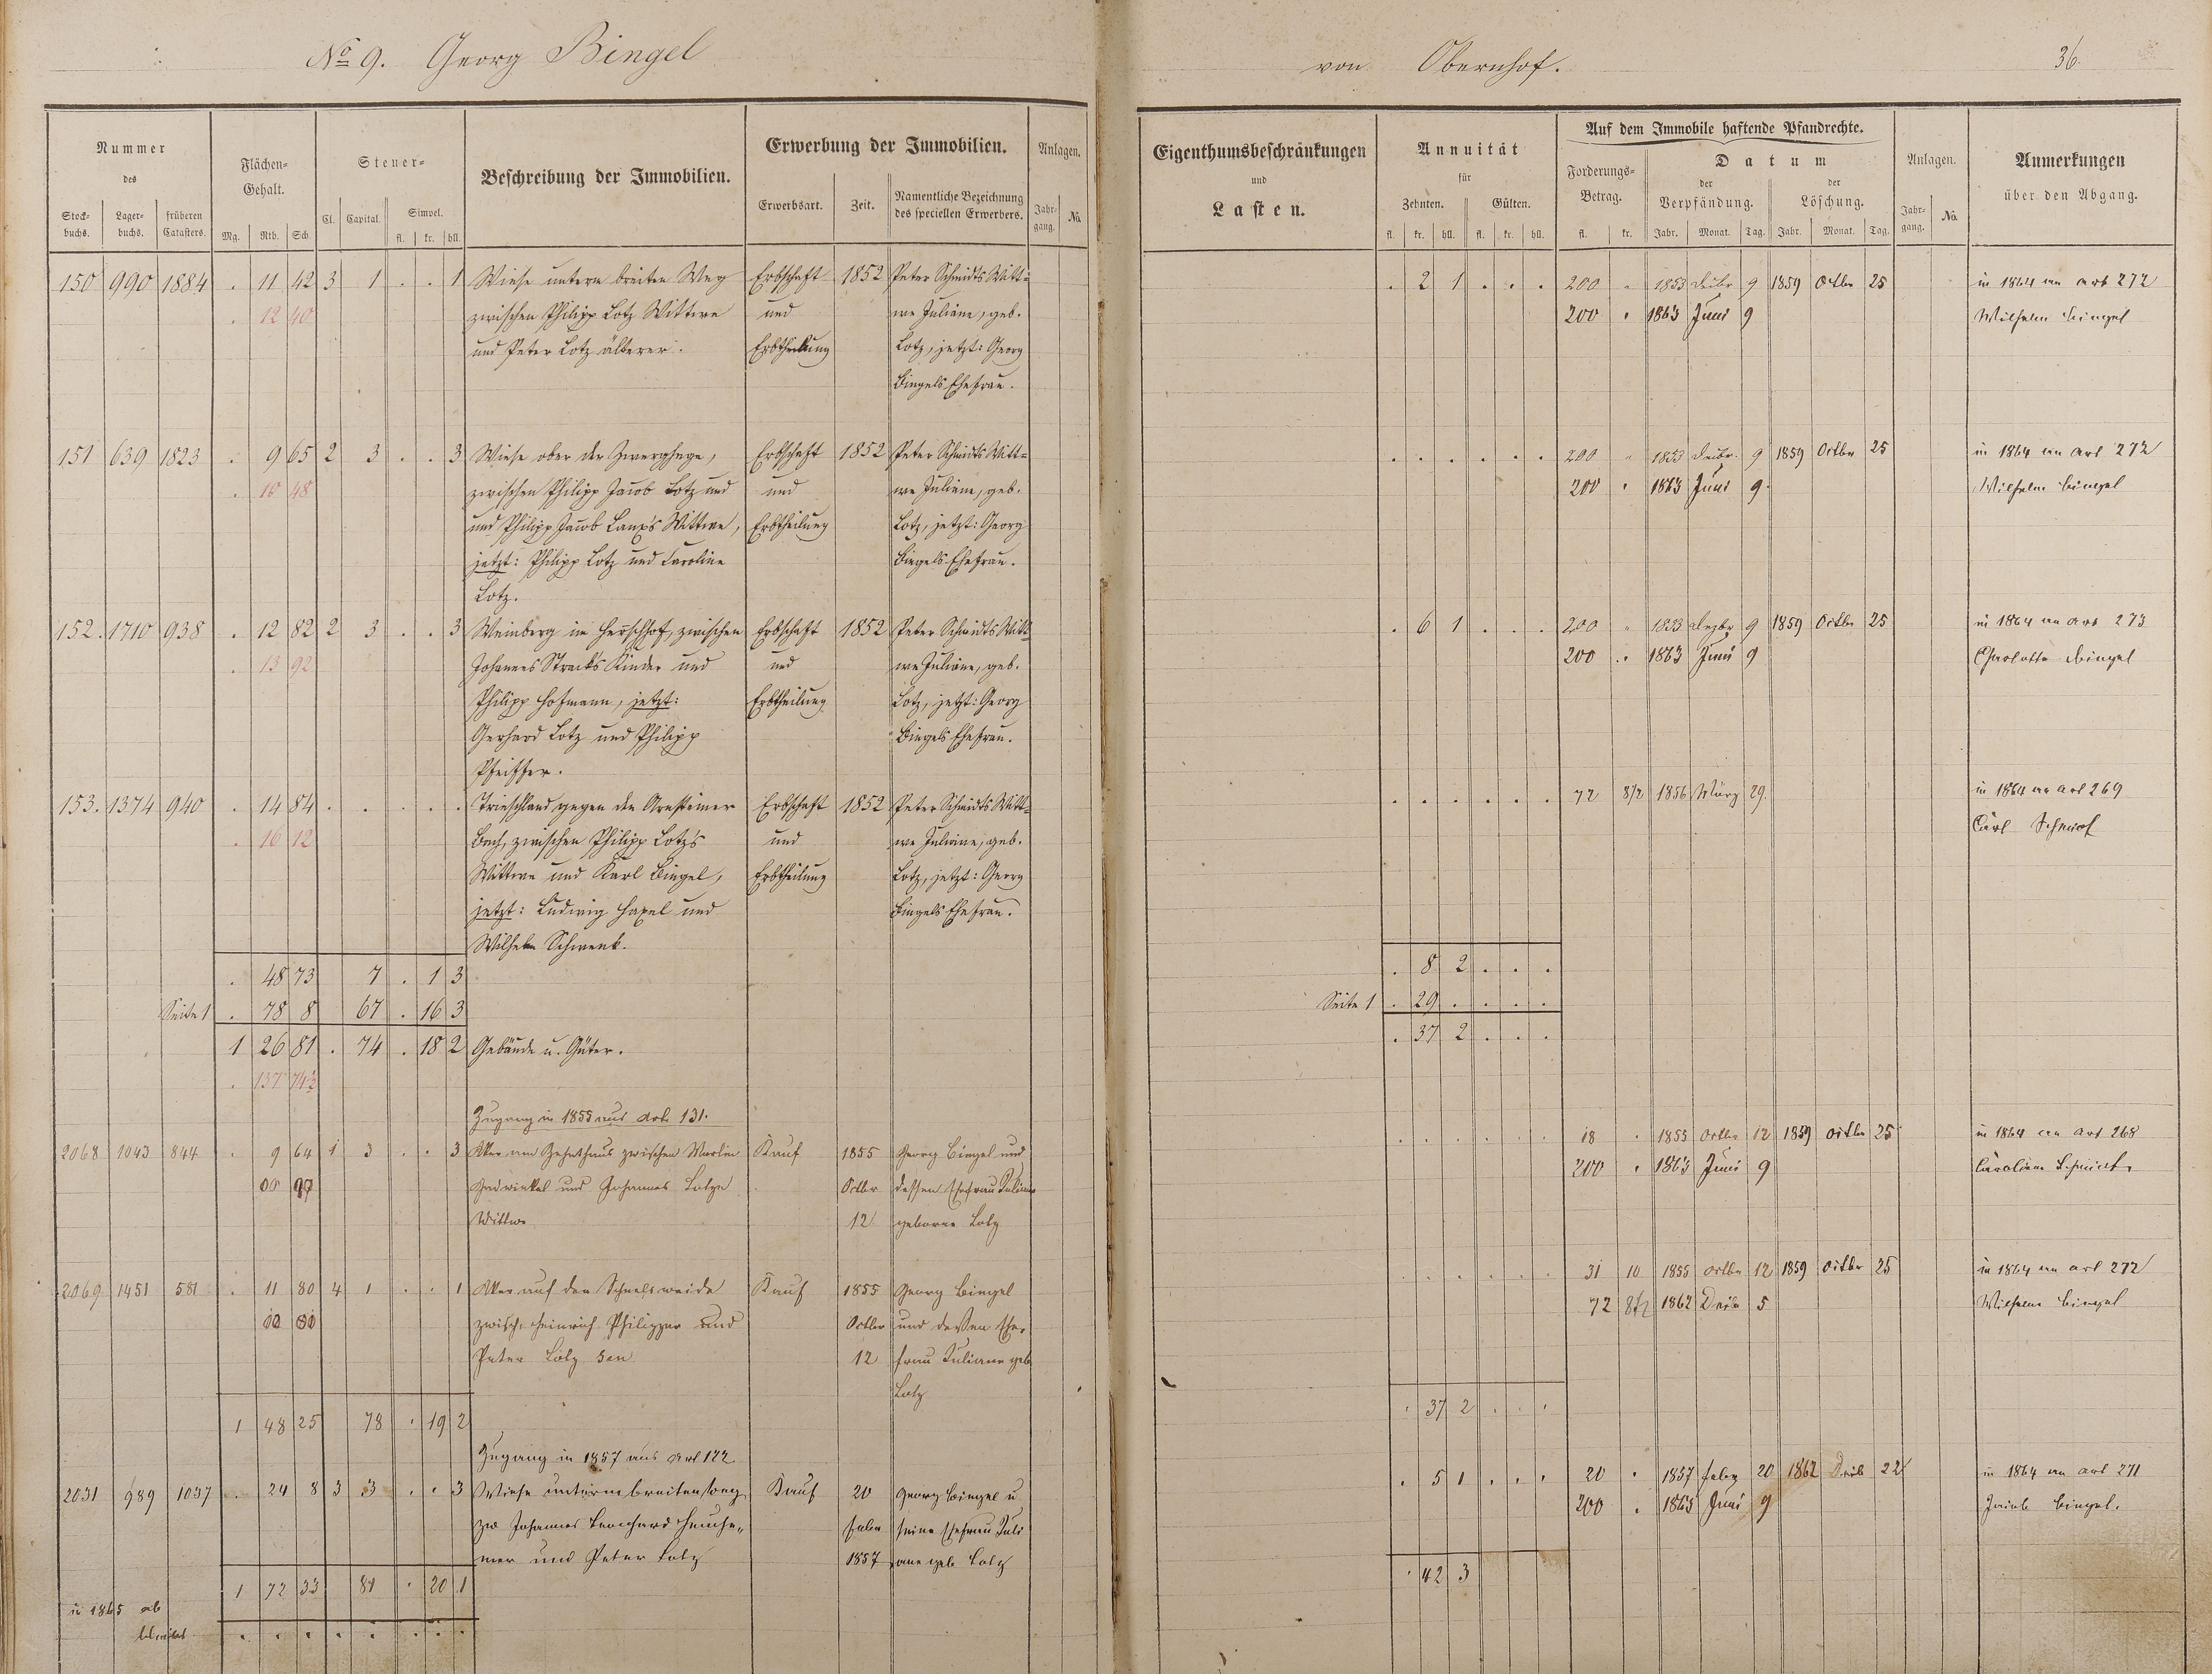 No 9. Georg Bingel
von Obernhof.
36.
Nummer
des
Stock-
buchs.
Lager-
buchs.
früheren
Catasters.
Flächen-
Gehalt.
Mg. Rth. Sch.
Steuer-
Cl. Capital. Simpel.
fl. kr. hll.
Beschreibung der Immobilien.
Erwerbung der Immobilien.
Erwerbsart. Zeit. Namentliche Bezeichnung
des speciellen Erwerbers.
Anlagen.
Jahr-
gang. No.
Eigenthumsbeschränkungen
und
Lasten.
Annuität
für
Zehnten. Gülten.
fl. kr. hll. fl. kr. hll.
Auf dem Immobile haftende Pfandrechte.
Forderungs-
Betrag.
fl. kr.
Datum
der
Verpfändung.
der
Löschung.
Jahr. Monat. Tag. Jahr. Monat. Tag.
Anlagen.
Jahr-
gang. No.
Anmerkungen
über den Abgang.
150 990 1884 . 11 42 3 1 . . 1 Wiese unterm breiten Weg Erbschaft 1852 Peter Schmidts Witt-
. 12 40 zwischen Philipp Lotz Wittwe und we Juliane, geb.
und Peter Lotz älterer. Erbtheilung Lotz, jetzt: Georg
Bingels Ehefrau.
. 2 1 . . . 200 . 1853 Dezbr 9 1859 Octbr 25 in 1864 an art 272
200 . 1863 Juni 9 Wilhelm Bingel
151 639 1823 . 9 65 2 3 . . 3 Wiese ober der Zwerghege, Erbschaft 1852 Peter Schmidts Witt-
. 10 48 zwischen Philipp Jacob Lotz und und we Juliane, geb.
und Philipp Jacob Lanx's Wittwe, Erbtheilung Lotz, jetzt: Georg
jetzt: Philipp Lotz und Caroline Bingels Ehefrau.
Lotz.
. . . . . . 200 . 1853 Dezbr. 9 1859 Octbr 25 in 1864 an art 272
200 . 1863 Juni 9. Wilhelm Bingel
152. 1710 938 . 12 82 2 3 . . 3 Weinberg im Herschhof, zwischen Erbschaft 1852 Peter Schmidts Witt-
. 13 92 Johannes Strack's Kinder und und we Juliane, geb.
Philipp Hofmann, jetzt: Erbtheilung Lotz, jetzt: Georg
Gerhard Lotz und Philipp Bingels Ehefrau.
Pfeiffer.
. 6 1 . . . 200 . 1853 Dezbr 9 1859 Octbr 25 in 1864 an art 273
200 . 1863 Juni 9 Charlotte Bingel
153. 1374 940 . 14 84 . . . . . Trieschland gegen den Arnsteiner Erbschaft 1852 Peter Schmidts Witt-
. 16 12 Bach, zwischen Philipp Lotz's und we Juliane, geb.
Wittwe und Karl Bingel, Erbtheilung Lotz, jetzt: Georg
jetzt: Ludwig Haxel und Bingels Ehefrau.
Wilhelm Schwenk.
. . . . . . 72 8 1/2 1856 März 29. in 1864 an art 269
Carl
. 48 73 7 . 1 3
Seite 1 . 78 8 67 . 16 3
1 26 81 . 74 . 18 2 Gebäude u. Güter.
. 137 74 1/2
. 8 2 . . .
Seite 1 . 29 . . . .
. 37 2 . . .
Zugang in 1855 aus Art. 131.
2068 1043 844 . 9 64 1 3 . . 3 Acker am Zehnthaus zwischen Kauf 1855 Georg Bingel und
und Johannes Lotzn Octbr dessen Ehefrau Juliane
Wittwe 12 geborne Lotz
. . . . . . 18 . 1855 Octbr 12 1859 Octbr 25 in 1864 an art 268
200 . 1863 Juni 9 Caroline
2069 1451 581 . 11 80 4 1 . . 1 Acker auf der Schnelsweide Kauf 1855 Georg Bingel
zwisch. Heinrich Philippar und Octbr und dessen Ehe-
Peter Lotz sen 12 frau Juliane geb
Lotz
. . . . . . 31 10 1855 Octbr 12 1859 Octbr 25 in 1864 an art 272
72 8 1/2 1862 Dezb 5 Wilhelm Bingel
1 48 25 78 . 19 2
. 37 2 . . .
Zugang in 1857 aus Art 122
2031 989 1037 . 24 8 3 3 . . 3 Wiese unterm breiten weg Kauf 20 Georg Bingel u
zw Johannes Bernhard febr seine Ehefrau Juli
mer und Peter Lotz 1857 ane geb Lotz
. 5 1 . . . 20 . 1857 febr 20 1862 Dezb 22 in 1864 an art 271
200 . 1863 Juni 9 Jacob Bingel.
1 72 33 81 . 20 1
. 42 3
in 1865 ab
. . . . . . . .